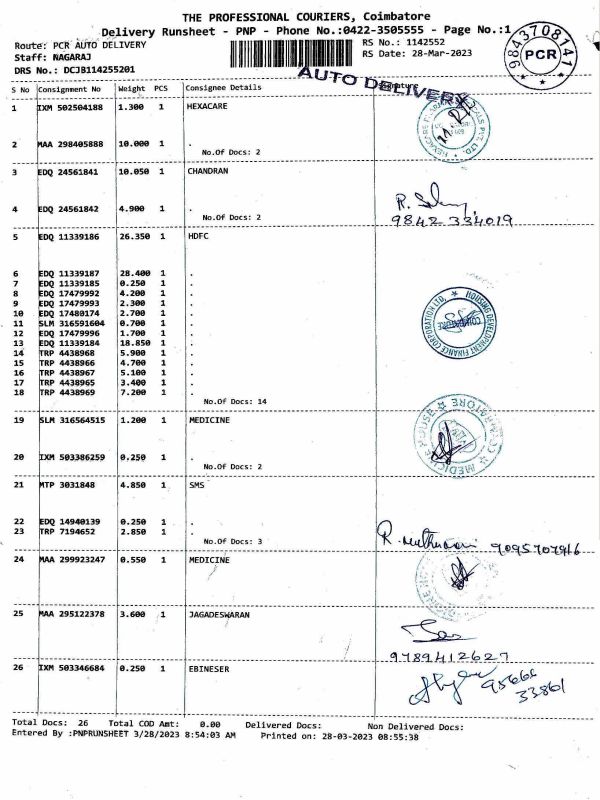 THE PROFESSIONAL COURIERS, Coimbatore
Delivery Runsheet - PNP - Phone No.:0422-3505555 - Page No.:1
Route: PCR AUTO DELIVERY
RS No.: 1142552
Staff: NAGARAJ
RS Date: 28-Mar-2023
DRS No.: DCJB114255201
9843708141
PCR
AUTO DELIVERY
S No Consignment No Weight PCS Consignee Details Signature
1 IXM 502504188 1.300 1 HEXACARE
2 MAA 298405888 10.000 1 .
No.Of Docs: 2
3 EDQ 24561841 10.050 1 CHANDRAN
4 EDQ 24561842 4.900 1 .
No.Of Docs: 2
9842 334019
5 EDQ 11339186 26.350 1 HDFC
6 EDQ 11339187 28.400 1 .
7 EDQ 11339185 0.250 1 .
8 EDQ 17479992 4.200 1 .
9 EDQ 17479993 2.300 1 .
10 EDQ 17480174 2.700 1 .
11 SLM 316591604 0.700 1 .
12 EDQ 17479996 1.700 1 .
13 EDQ 11339184 18.850 1 .
14 TRP 4438968 5.900 1 .
15 TRP 4438966 4.700 1 .
16 TRP 4438967 5.100 1 .
17 TRP 4438965 3.400 1 .
18 TRP 4438969 7.200 1 .
No.Of Docs: 14
HOUSING DEVELOPMENT FINANCE CORPORATION LTD.
COIMBATORE
19 SLM 316564515 1.200 1 MEDICINE
20 IXM 503386259 0.250 1 .
No.Of Docs: 2
MEDICINE HOUSE
COIMBATORE
21 MTP 3031848 4.850 1 SMS
22 EDQ 14940139 0.250 1 .
23 TRP 7194652 2.850 1 .
No.Of Docs: 3
9095707916
24 MAA 299923247 0.550 1 MEDICINE
25 MAA 295122378 3.600 1 JAGADESWARAN
9789412627
26 IXM 503346684 0.250 1 EBINESER
95666
33861
Total Docs: 26 Total COD Amt: 0.00 Delivered Docs: Non Delivered Docs:
Entered By :PNPRUNSHEET 3/28/2023 8:54:03 AM Printed on: 28-03-2023 08:55:38